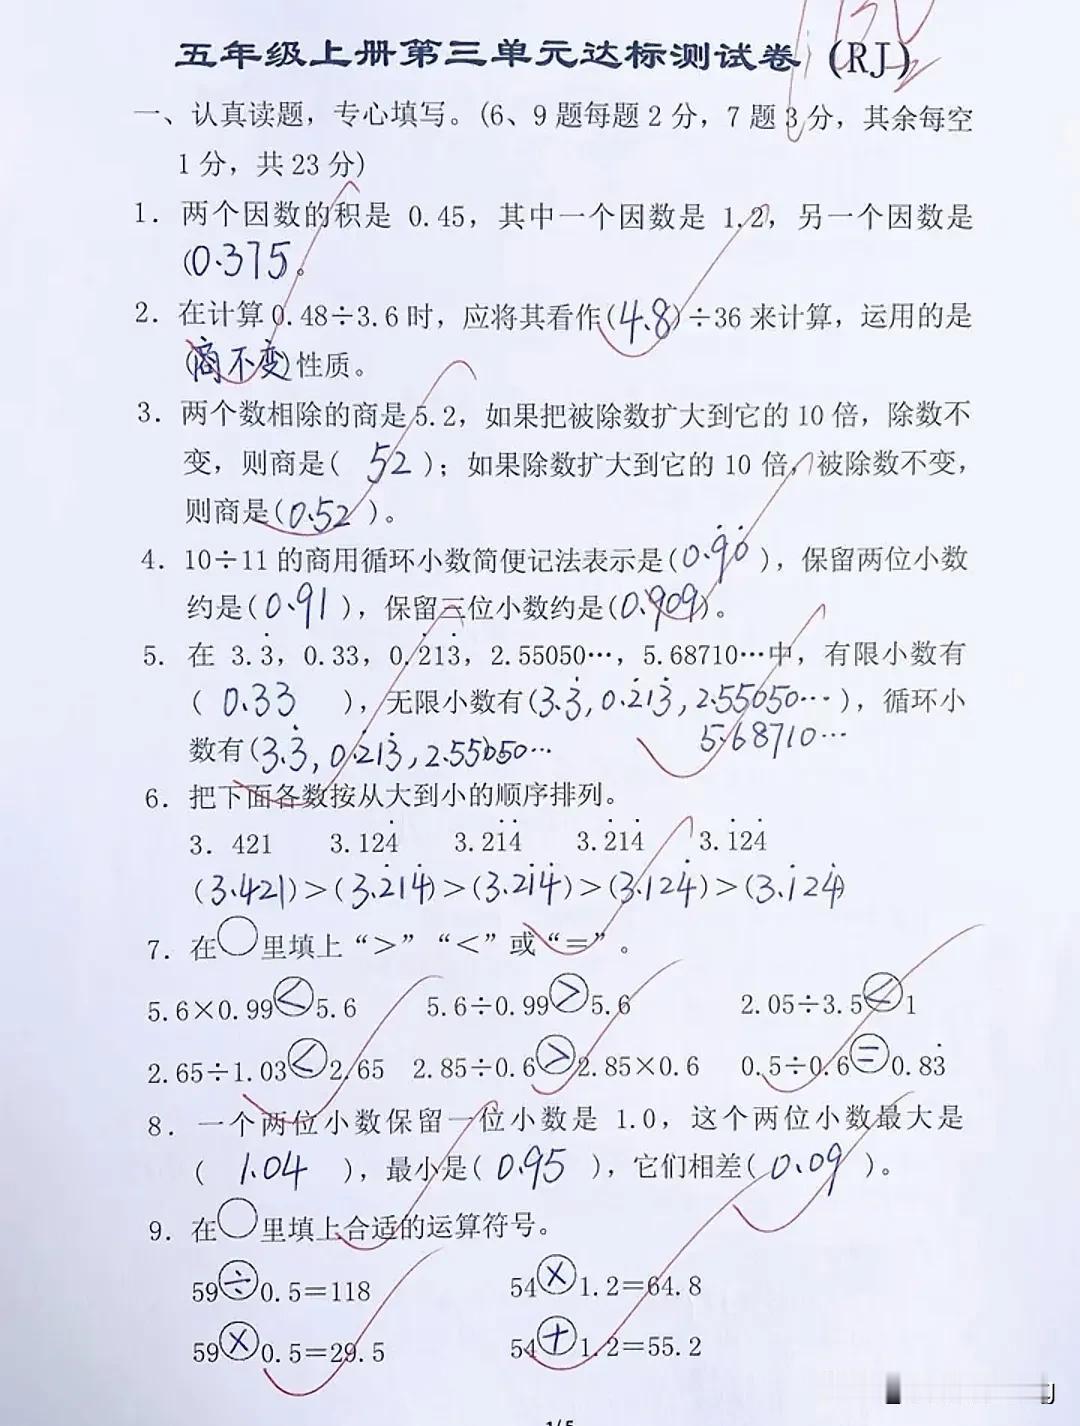 五年级上册第三单元达标测试卷 (RJ)
一、认真读题，专心填写。(6、9题每题2分，7题3分，其余每空
1分，共23分)
1. 两个因数的积是 0.45，其中一个因数是 1.2，另一个因数是
(0.375)。
2. 在计算0.48÷3.6时，应将其看作(4.8)÷36来计算，运用的是
(商不变)性质。
3. 两个数相除的商是5.2，如果把被除数扩大到它的10倍，除数不
变，则商是( 52 )；如果除数扩大到它的10倍，被除数不变，
则商是(0.52 )。
4. 10÷11的商用循环小数简便记法表示是(0.9̇0̇ )，保留两位小数
约是(0.91 )，保留三位小数约是(0.909)。
5. 在 3.3̇，0.33，0.2̇13̇，2.55050…，5.68710…中，有限小数有
( 0.33 )，无限小数有(3.3̇,0.2̇13̇,2.55050… )，循环小
5.68710…
数有(3.3̇,0.2̇13̇,2.55050…
6. 把下面各数按从大到小的顺序排列。
3. 421 3.124̇ 3.21̇4̇ 3.2̇14̇ 3.1̇24̇
(3.421)>(3.2̇14̇)>(3.21̇4̇)>(3.124̇)>(3.1̇24̇)
7. 在○里填上“>”“<”或“=”。
5.6×0.99<5.6 5.6÷0.99>5.6 2.05÷3.5<1
2.65÷1.03<2.65 2.85÷0.6>2.85×0.6 0.5÷0.6=0.83̇
8. 一个两位小数保留一位小数是 1.0，这个两位小数最大是
( 1.04 )，最小是( 0.95 )，它们相差( 0.09 )。
9. 在○里填上合适的运算符号。
59÷0.5=118 54×1.2=64.8
59×0.5=29.5 54+1.2=55.2